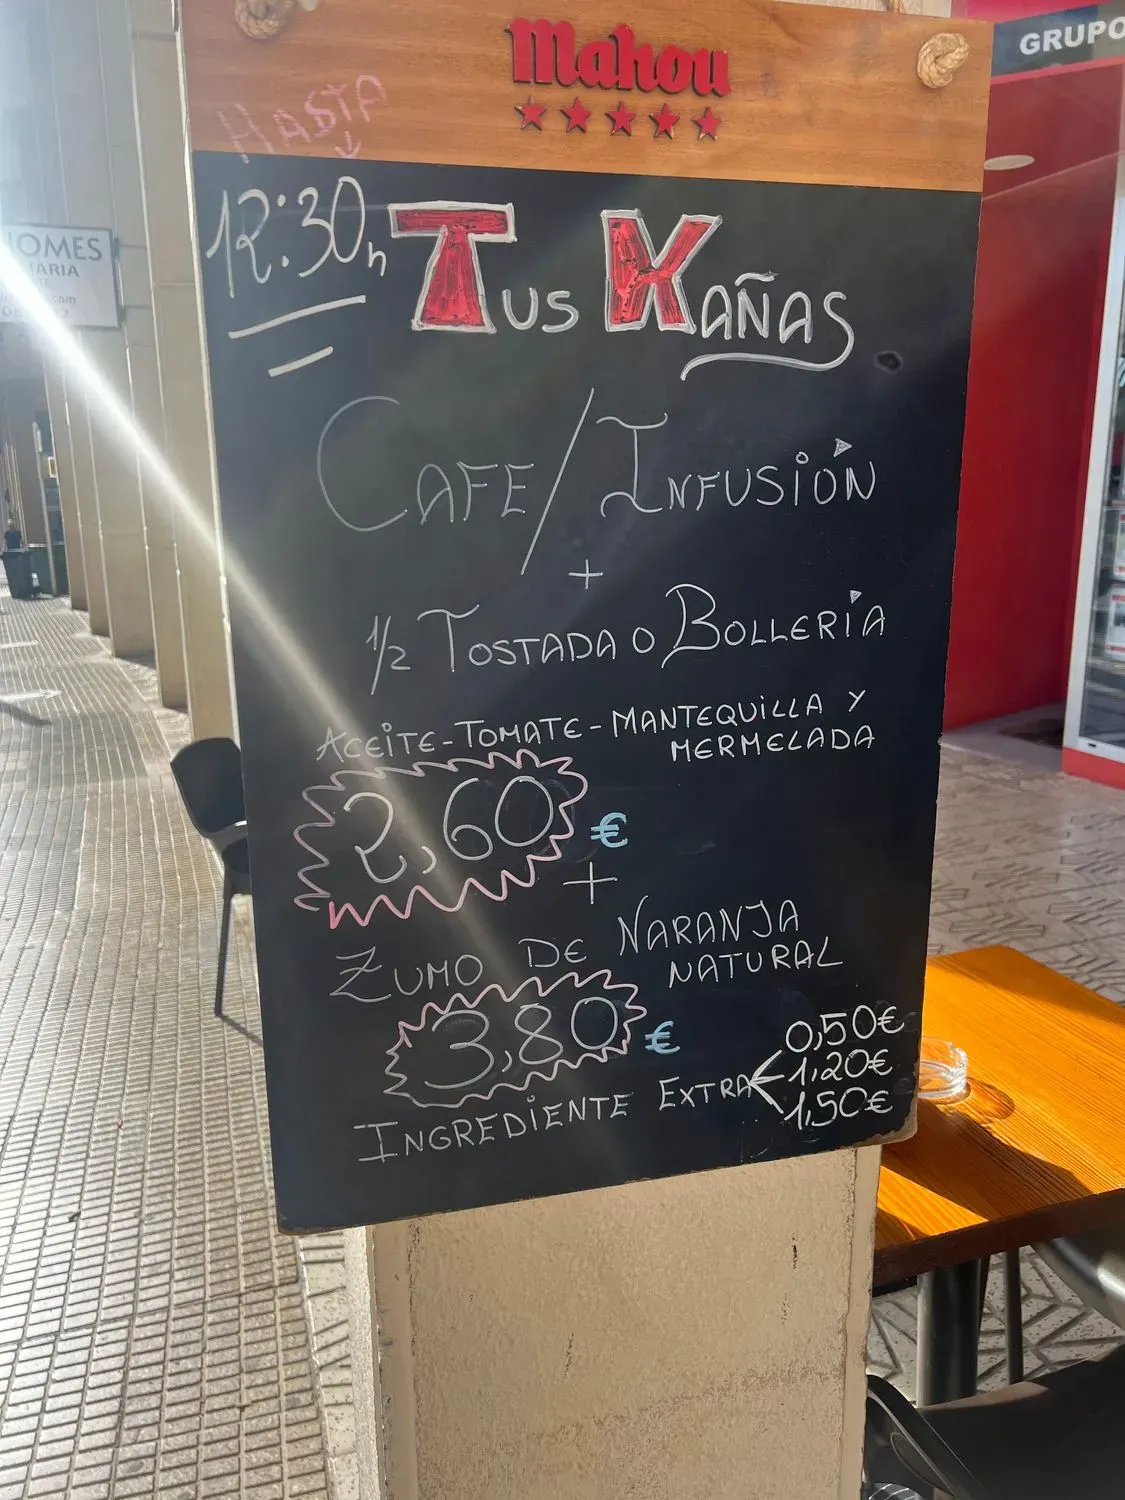 Mahou
GRUPO
HASTA
12:30h
TUS KAÑAS
CAFE/INFUSIÓN
+
1/2 TOSTADA O BOLLERÍA
ACEITE-TOMATE-MANTEQUILLA Y
MERMELADA
2,60 €
+
ZUMO DE NARANJA
NATURAL
3,80 €
INGREDIENTE EXTRA
0,50€
1,20€
1,50€